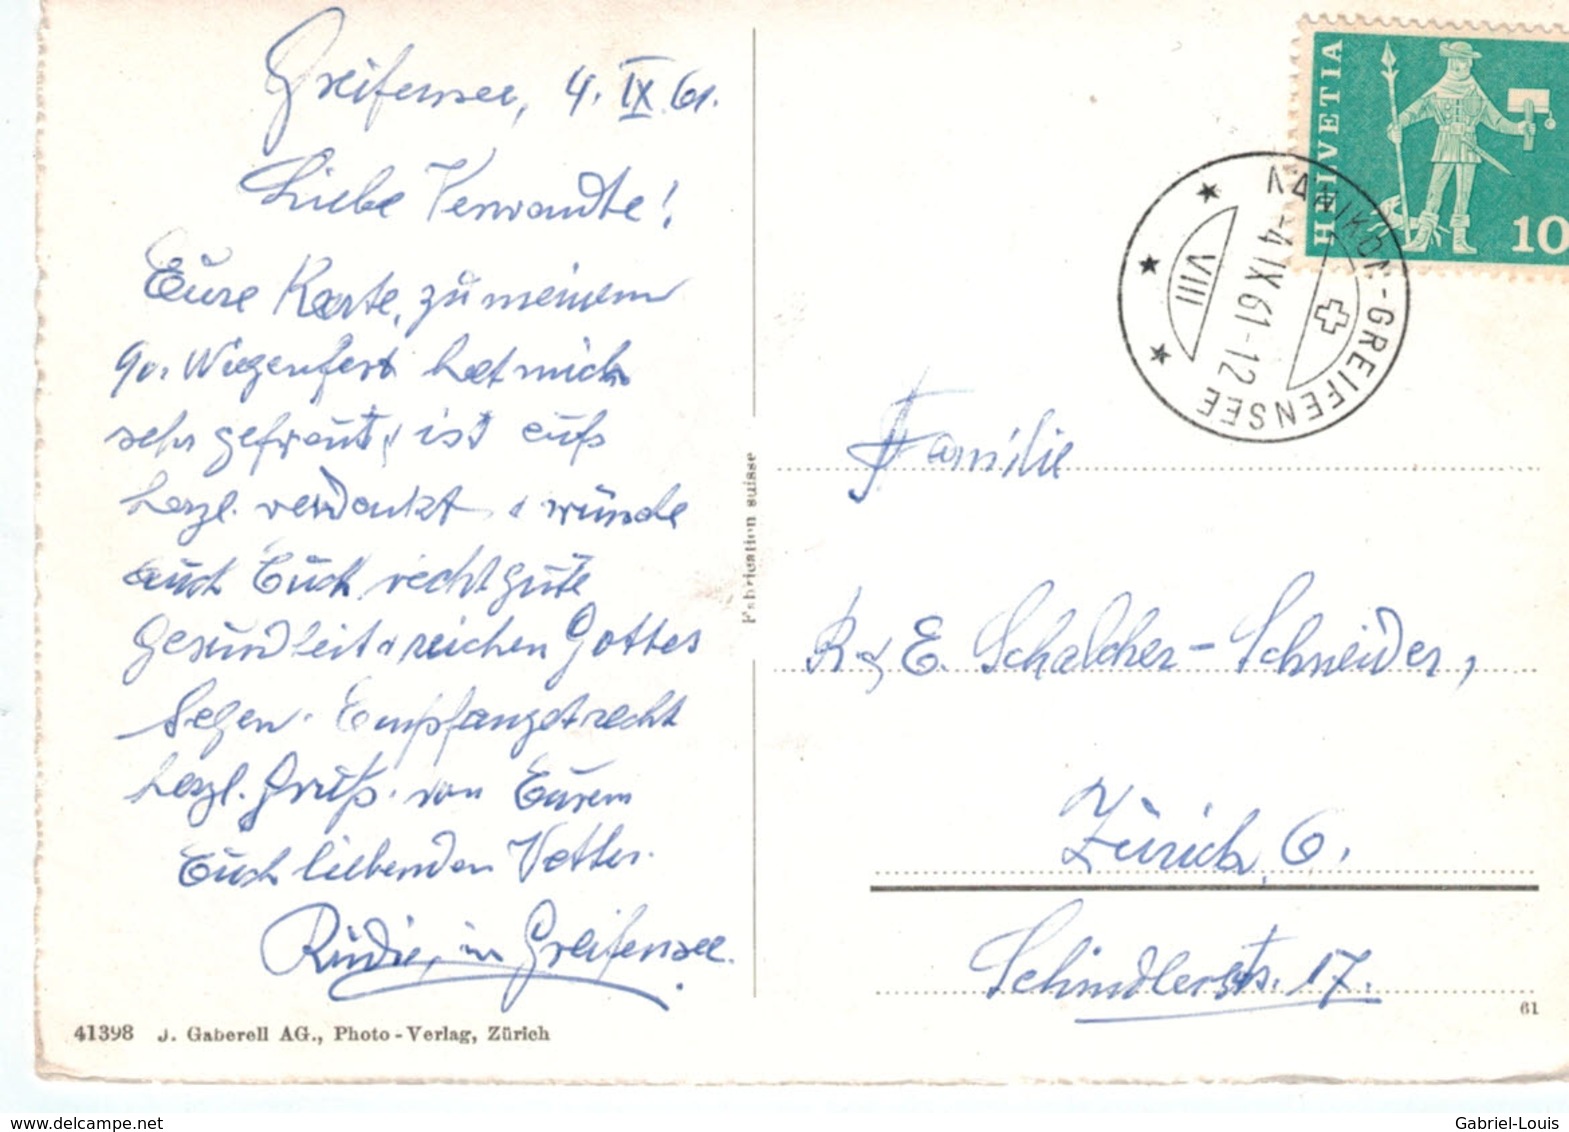 Greifensee, 4. IX. 61.
Liebe Verwandte!
Eure Karte, zu meinem
90. Wiegenfest hat mich
sehr gefreut & ist aufs
herzl. verdankt & wünsche
auch Euch recht gute
Gesundheit & reichen Gottes
Segen. Empfanget recht
herzl. Gruß. von Eurem
Euch liebenden Vetter.
Rüdie, in Greifensee.
41398 J. Gaberell AG., Photo-Verlag, Zürich
Fabrication suisse
HELVETIA
10
NÄNIKON-GREIFENSEE
-4 IX 61-12
VIII
Familie
R & E. Schalcher-Schneider,
Zürich, 6.
Schindlerstr. 17.
61
delcampe.net
Gabriel-Louis